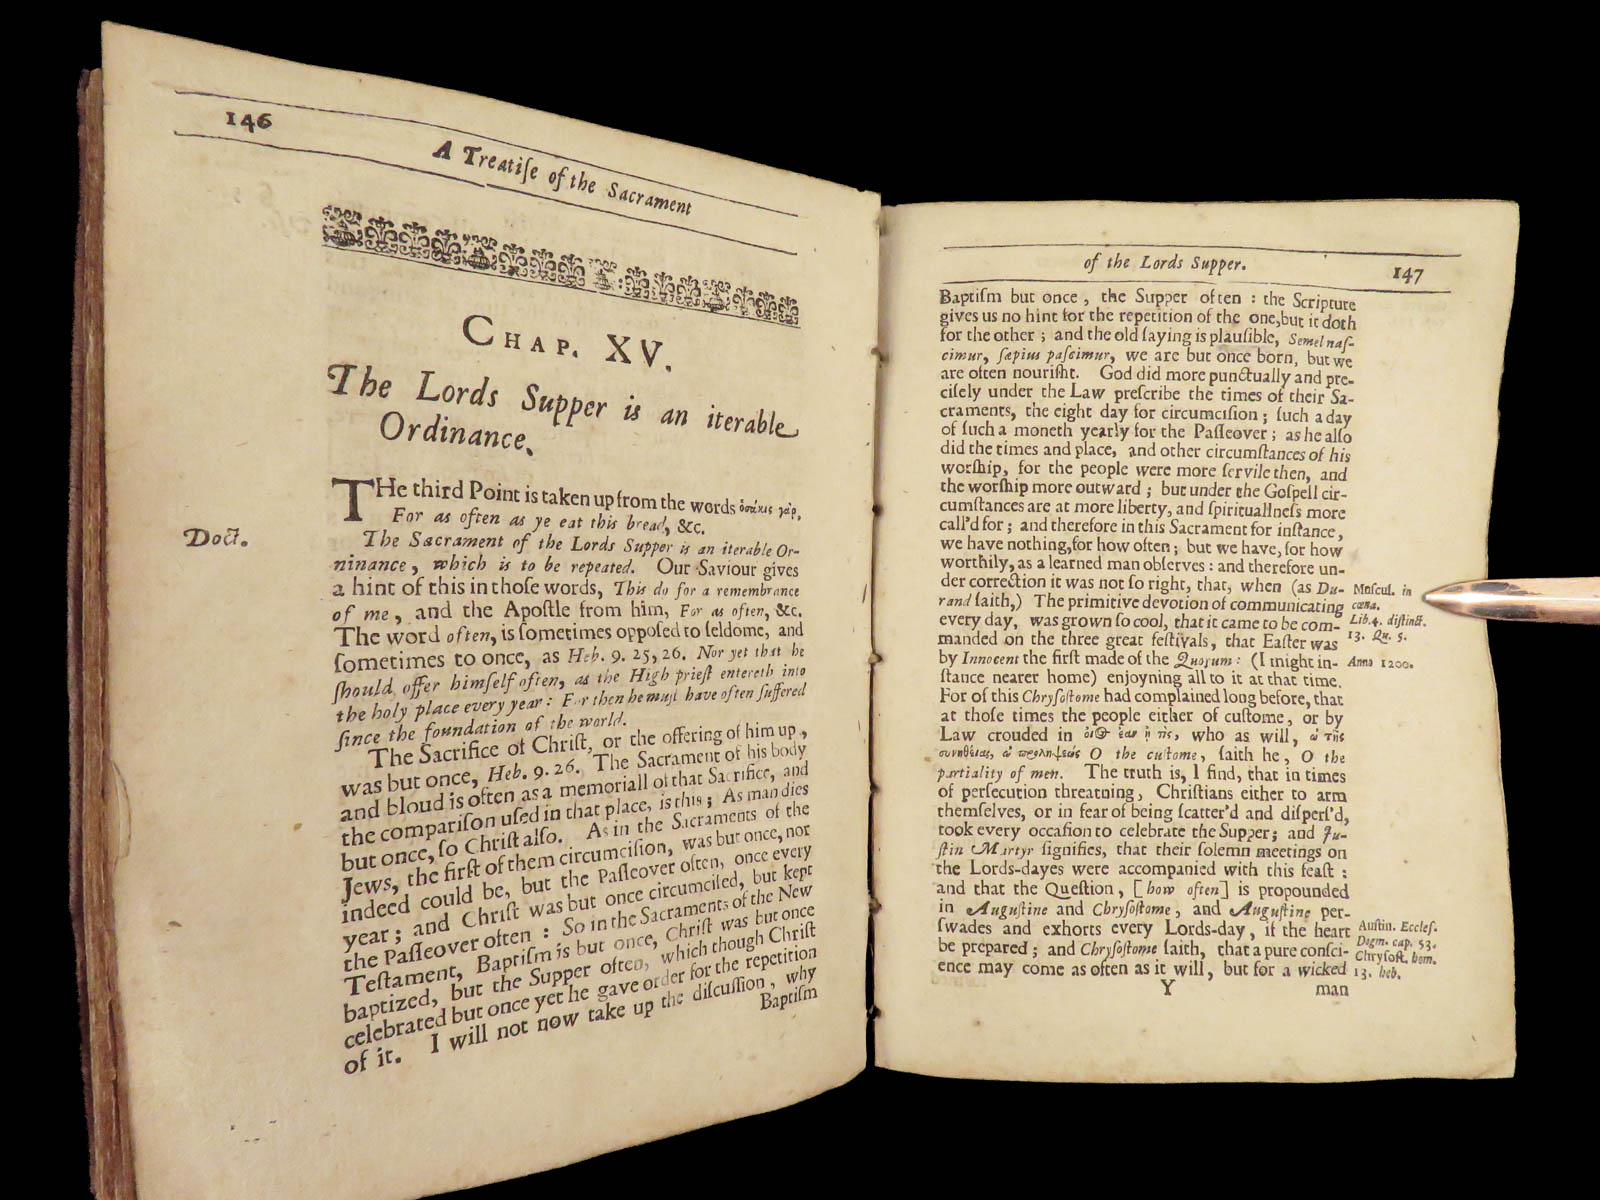 146
A Treatiſe of the Sacrament
CHAP. XV.
The Lords Supper is an iterable
Ordinance.
THe third Point is taken up from the words ὁσάκις γάρ,
For as often as ye eat this bread, &c.
Doct.
The Sacrament of the Lords Supper is an iterable Or-
ninance, which is to be repeated. Our Saviour gives
a hint of this in thoſe words, This do for a remembrance
of me, and the Apoſtle from him, For as often, &c.
The word often, is ſometimes oppoſed to ſeldome, and
ſometimes to once, as Heb. 9. 25, 26. Nor yet that he
ſhould offer himſelf often, as the High prieſt entereth into
the holy place every year: For then he muſt have often ſuffered
ſince the foundation of the world.
The Sacrifice of Chriſt, or the offering of him up,
was but once, Heb. 9. 26. The Sacrament of his body
and bloud is often as a memoriall of that Sacrifice, and
the compariſon uſed in that place, is this; As man dies
but once, ſo Chriſt alſo. As in the Sacraments of the
Jews, the firſt of them circumciſion, was but once, nor
indeed could be, but the Paſſeover often, once every
year; and Chriſt was but once circumciſed, but kept
the Paſſeover often: So in the Sacraments of the New
Teſtament, Baptiſm is but once, Chriſt was but once
baptized, but the Supper often, which though Chriſt
celebrated but once yet he gave order for the repetition
of it. I will not now take up the diſcuſſion, why
Baptiſm
of the Lords Supper.
147
Baptiſm but once, the Supper often: the Scripture
gives us no hint for the repetition of the one,but it doth
for the other; and the old ſaying is plauſible, Semel naſ-
cimur, ſæpius paſcimur, we are but once born, but we
are often nouriſht. God did more punctually and pre-
ciſely under the Law preſcribe the times of their Sa-
craments, the eight day for circumciſion; ſuch a day
of ſuch a moneth yearly for the Paſſeover; as he alſo
did the times and place, and other circumſtances of his
worſhip, for the people were more ſervile then, and
the worſhip more outward; but under the Goſpell cir-
cumſtances are at more liberty, and ſpirituallneſs more
call'd for; and therefore in this Sacrament for inſtance,
we have nothing,for how often; but we have, for how
worthily, as a learned man obſerves: and therefore un-
der correction it was not ſo right, that, when (as Du-
rand ſaith,) The primitive devotion of communicating
every day, was grown ſo cool, that it came to be com-
manded on the three great feſtivals, that Eaſter was
by Innocent the firſt made of the Quorum: (I might in-
ſtance nearer home) enjoyning all to it at that time.
For of this Chryſoſtome had complained long before, that
at thoſe times the people either of cuſtome, or by
Law crouded in who as will, ὢ τῆς
συνηθείας, ὢ προλήψεως O the cuſtome, ſaith he, O the
partiality of men. The truth is, I find, that in times
of perſecution threatning, Chriſtians either to arm
themſelves, or in fear of being ſcatter'd and diſperſ'd,
took every occaſion to celebrate the Supper; and Ju-
ſtin Martyr ſignifies, that their ſolemn meetings on
the Lords-dayes were accompanied with this feaſt:
and that the Queſtion, [how often] is propounded
in Auguſtine and Chryſoſtome, and Auguſtine per-
ſwades and exhorts every Lords-day, if the heart
be prepared; and Chryſoſtome ſaith, that a pure conſci-
ence may come as often as it will, but for a wicked
Y
man
Muſcul. in
cœna.
Lib. 4. diſtinct.
13. Qu. 5.
Anno 1200.
Auſtin. Eccleſ.
Dogm. cap. 53.
Chryſoſt. hom.
13. heb.